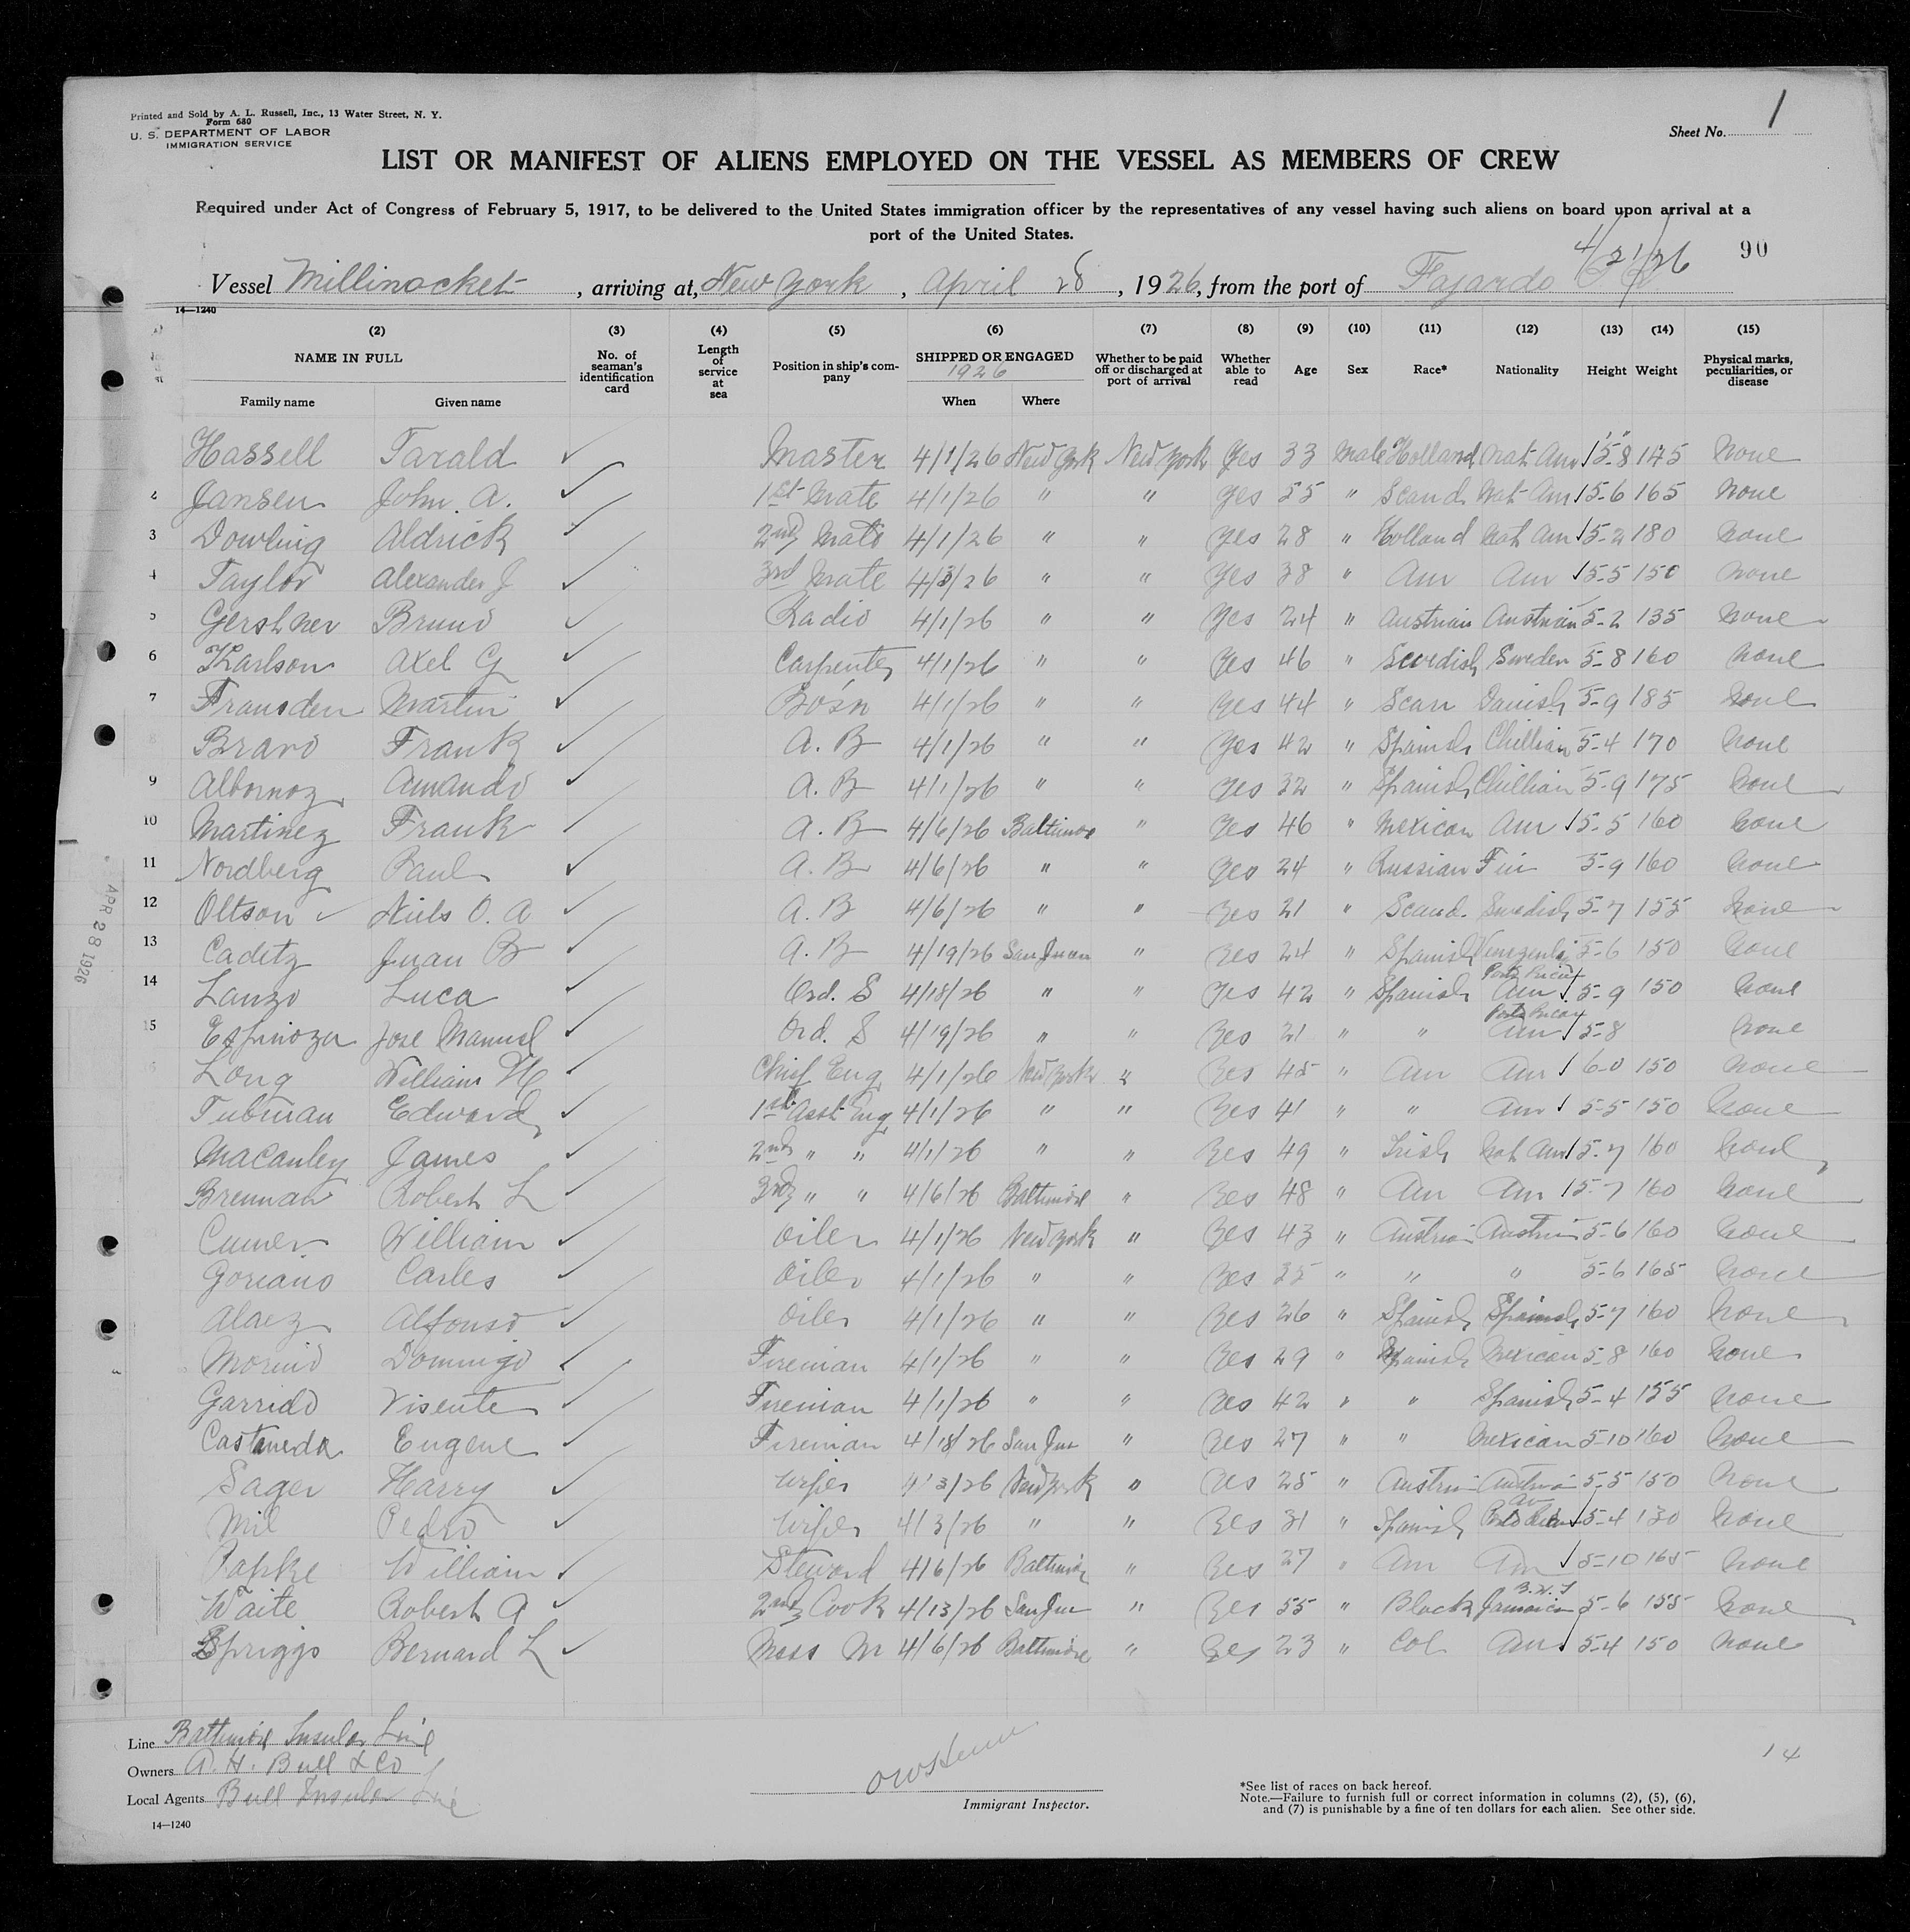 Printed and Sold by A. L. Russell, Inc., 13 Water Street, N. Y.
Form 680
U. S. DEPARTMENT OF LABOR
IMMIGRATION SERVICE
Sheet No. 1
LIST OR MANIFEST OF ALIENS EMPLOYED ON THE VESSEL AS MEMBERS OF CREW
Required under Act of Congress of February 5, 1917, to be delivered to the United States immigration officer by the representatives of any vessel having such aliens on board upon arrival at a
port of the United States.
4/21/26 90
Vessel Millinocket, arriving at, New York, April 28, 1926, from the port of Fajardo
14—1240
(2) (3) (4) (5) (6) (7) (8) (9) (10) (11) (12) (13) (14) (15)
NAME IN FULL No. of seaman's identification card Length of service at sea Position in ship's company SHIPPED OR ENGAGED 1926 Whether to be paid off or discharged at port of arrival Whether able to read Age Sex Race* Nationality Height Weight Physical marks, peculiarities, or disease
Family name Given name When Where
Hassell Tarald ✓ Master 4/1/26 New York New York Yes 33 Male Holland Nat Am ✓ 5-8 145 None
2 Jansen John A. ✓ 1st Mate 4/1/26 " " Yes 55 " Scand Nat Am ✓ 5-6 165 None
3 Dowling Aldrick ✓ 2nd Mate 4/1/26 " " Yes 28 " Holland Nat Am ✓ 5-2 180 None
4 Taylor Alexander J ✓ 3rd Mate 4/3/26 " " Yes 38 " Am Am ✓ 5-5 150 None
5 Gershner Bruno ✓ Radio 4/1/26 " " Yes 24 " Austrian Austrian 5-2 135 None
6 Karlson Axel G ✓ Carpenter 4/1/26 " " Yes 46 " Swedish Sweden 5-8 160 None
7 Fransden Martin ✓ Bo's'n 4/1/26 " " Yes 44 " Scan Danish 5-9 185 None
8 Bravo Frank ✓ A. B 4/1/26 " " Yes 42 " Spanish Chillian 5-4 170 None
9 Albornoz Amando ✓ A. B 4/1/26 " " Yes 32 " Spanish Chillian 5-9 175 None
10 Martinez Frank ✓ A. B 4/6/26 Baltimore " Yes 46 " Mexican Am ✓ 5-5 160 None
11 Nordberg Paul ✓ A. B 4/6/26 " " Yes 24 " Russian Fin 5-9 160 None
12 Oltson ✓ Niels O. A ✓ A. B 4/6/26 " " Yes 21 " Scand. Swedish 5-7 155 None
13 Cadetz Juan B ✓ A. B 4/19/26 San Juan " Yes 24 " Spanish 5-6 150 None
14 Lanzo Luca ✓ Ord. S 4/18/26 " " Yes 42 " Spanish Porto Rican Am ✓ 5-9 150 None
15 Espinoza Jose Manuel ✓ Ord. S 4/19/26 " " Yes 21 " " Porto Rican Am ✓ 5-8 None
Long William H ✓ Chief Eng 4/1/26 New York " Yes 45 " Am Am ✓ 6-0 150 None
Tubman Edward ✓ 1st Asst Eng 4/1/26 " " Yes 41 " " Am ✓ 5-5 150 None
Macanley James ✓ 2nd " " 4/1/26 " " Yes 49 " Irish Nat Am ✓ 5-7 160 None
Brennan Robert L ✓ 3rd " " 4/6/26 Baltimore " Yes 48 " Am Am ✓ 5-7 160 None
Cumer William ✓ Oiler 4/1/26 New York " Yes 43 " Austria Austria 5-6 160 None
Goriano Carles ✓ Oiler 4/1/26 " " Yes 35 " " " 5-6 165 None
Alaez Alfonso ✓ Oiler 4/1/26 " " Yes 26 " Spanish Spanish 5-7 160 None
Morino Domingo ✓ Fireman 4/1/26 " " Yes 29 " Spanish Mexican 5-8 160 None
Garrido Visente ✓ Fireman 4/1/26 " " Yes 42 " " Spanish 5-4 155 None
Castaneda Eugene ✓ Fireman 4/18/26 San Jua " Yes 27 " " Mexican 5-10 160 None
Sager Harry ✓ Wiper 4/3/26 New York " Yes 25 " Austria Austria 5-5 150 None
Mil Pedro ✓ Wiper 4/3/26 " " Yes 31 " Spanish Am Porto Rican ✓ 5-4 130 None
Papke William ✓ Steward 4/6/26 Baltimore " Yes 27 " Am Am ✓ 5-10 165 None
Waite Robert A ✓ 2nd Cook 4/13/26 San Jua " Yes 55 " Black B.W.I Jamaica 5-6 155 None
Spriggs Bernard L ✓ Mess M 4/6/26 Baltimore " Yes 23 " Col Am ✓ 5-4 150 None
APR 28 1926
Line Baltimore Insular Line
Owners A. H. Bull & Co
Local Agents Bull Insular Line
14—1240
Immigrant Inspector.
14
*See list of races on back hereof.
Note.—Failure to furnish full or correct information in columns (2), (5), (6),
and (7) is punishable by a fine of ten dollars for each alien. See other side.